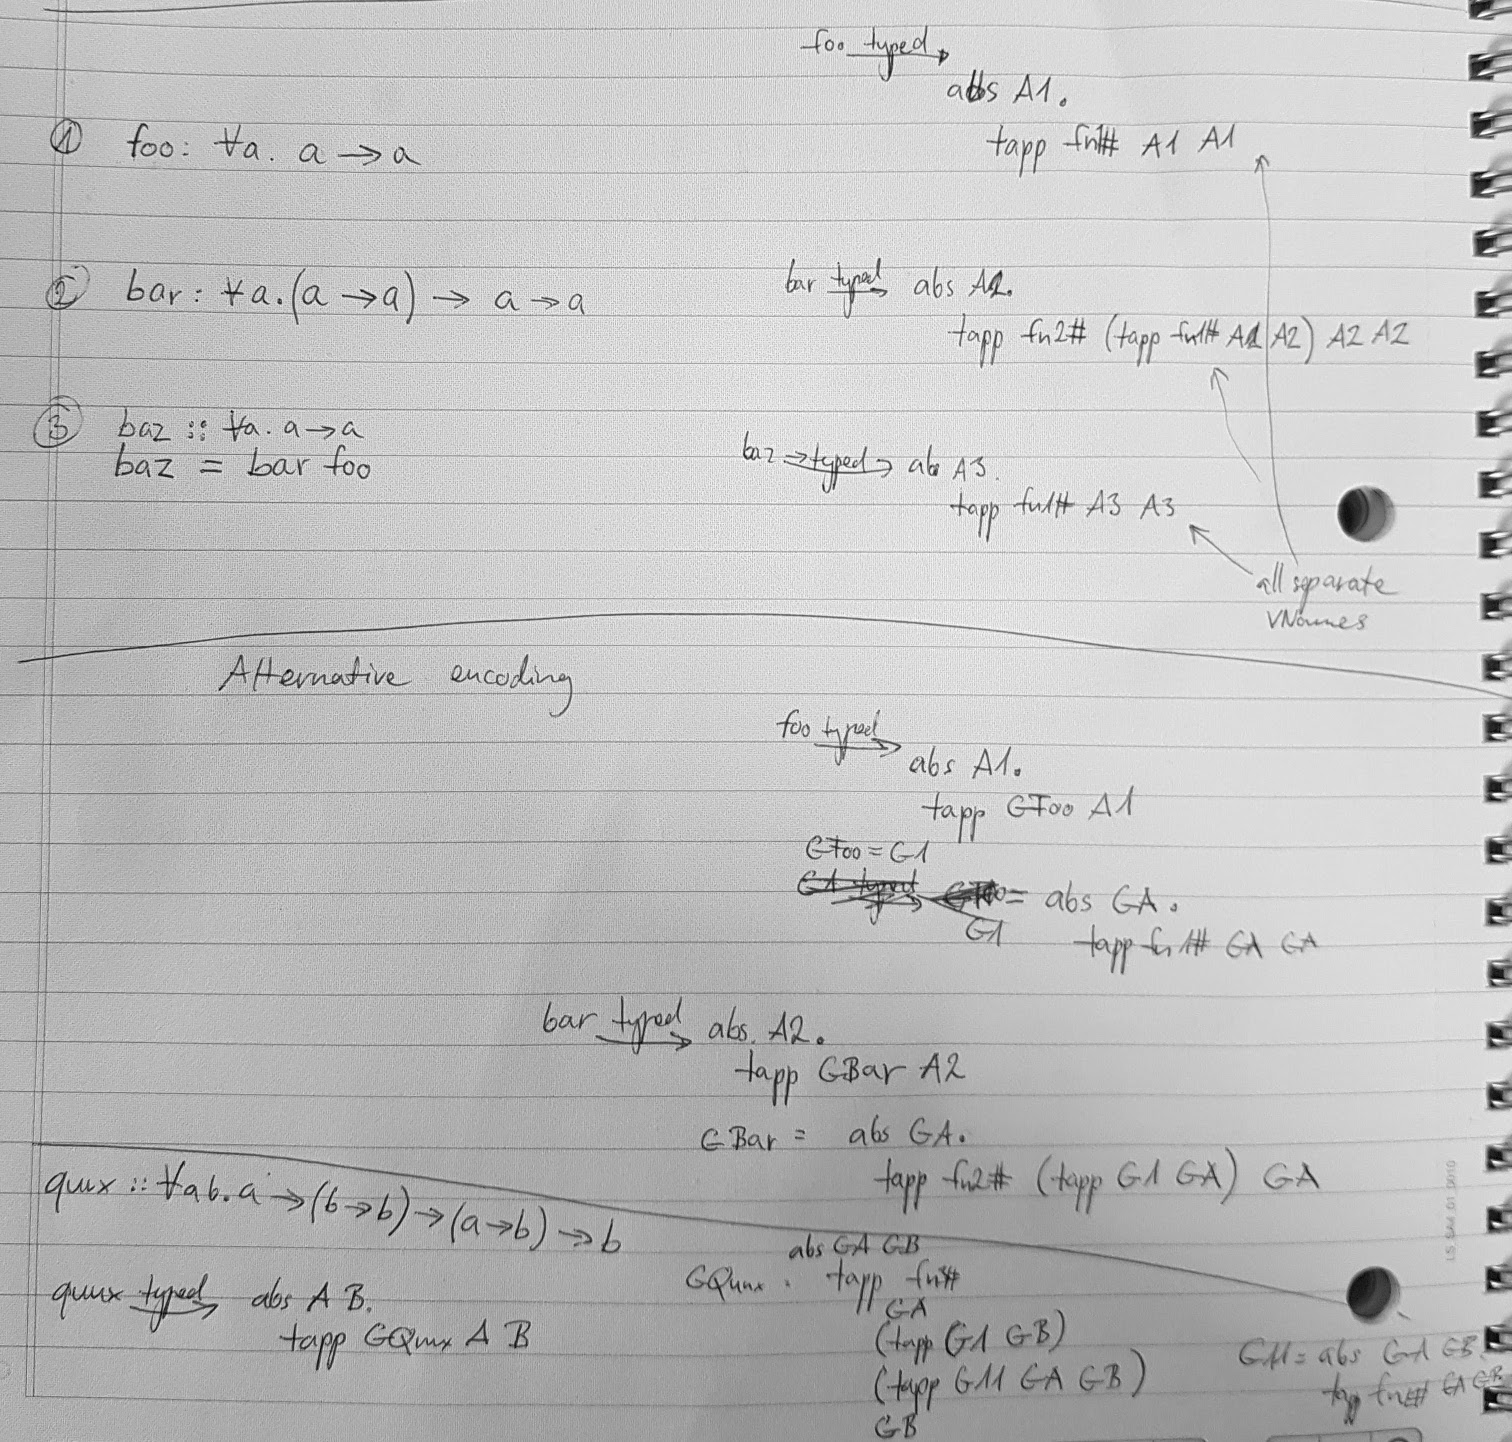 foo typed →
abs A1.
① foo: ∀a. a → a
tapp fn1# A1 A1
② bar: ∀a.(a → a) → a → a
bar typed → abs A2.
tapp fn2# (tapp fn1# A2 A2) A2 A2
③ baz :: ∀a. a → a
baz = bar foo
baz typed → abs A3.
tapp fn1# A3 A3
all separate
VNames
Alternative encoding
foo typed →
abs A1.
tapp GFoo A1
GFoo = G1
G1 = abs GA.
tapp fn1# GA GA
bar typed → abs. A2.
tapp GBar A2
GBar = abs GA.
tapp fn2# (tapp G1 GA) GA
quux :: ∀ab. a → (b → b) → (a → b) → b
quux typed → abs A B.
tapp GQuux A B
abs GA GB
GQuux . tapp fn#
GA
(tapp G1 GB)
(tapp G11 GA GB)
GB
G11 = abs GA GB.
tapp fn# GA GB
LS_SM4_01_0010